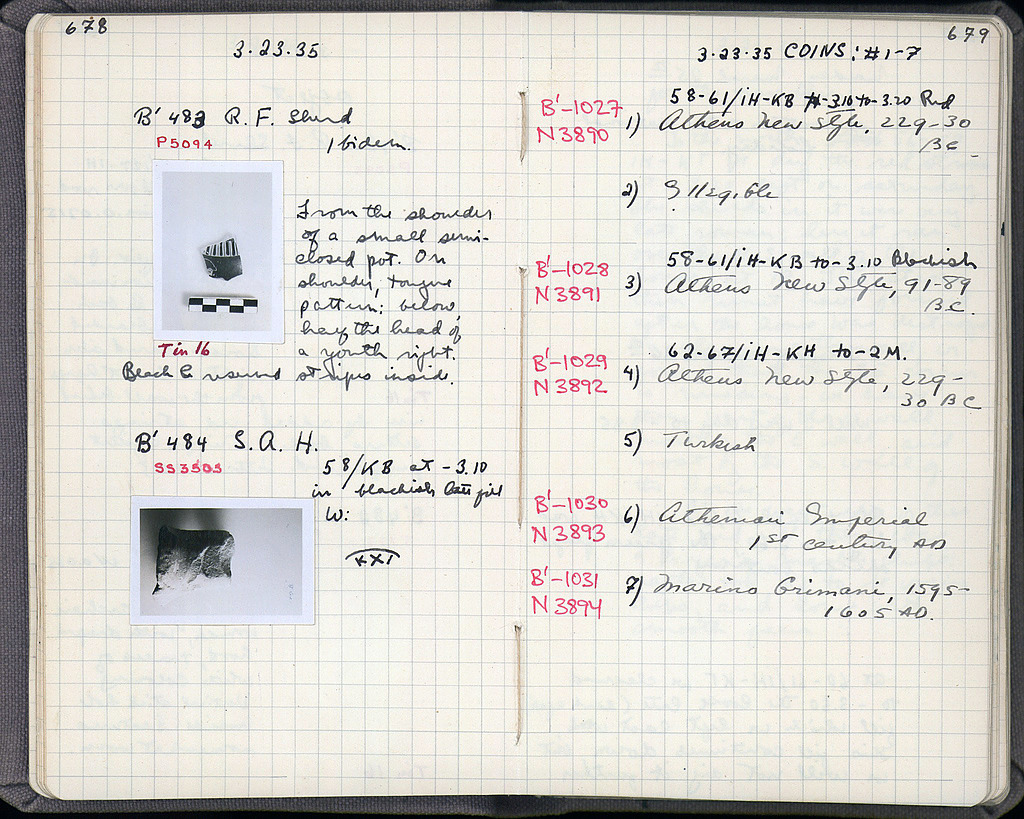 678
3·23·35
B' 483 R. F. Sherd
P5094
Ibidem.
From the shoulder
of a small semi-
closed pot. On
shoulder, tongue
pattern; below,
the head of
a youth right.
Tin 16
Black & reserved stripes inside.
B' 484 S. A. H.
SS3505
58/KB at -3.10
in blackish fill
W:
KXI
679
3·23·35 COINS: #1-7
58-61/IH-KB -3.10 to -3.20 Red
B'-1027
N3890
1) Athens New Style, 229-30
BC
2) Illegible
58-61/IH-KB to -3.10 Blackish
B'-1028
N3891
3) Athens New Style, 91-89
B.C.
62-67/IH-KH to -2M.
B'-1029
N3892
4) Athens New Style, 229-
30 BC
5) Turkish
B'-1030
N3893
6) Athenian Imperial
1st century AD
B'-1031
N3894
7) Marino Grimani, 1595-
1605 AD.